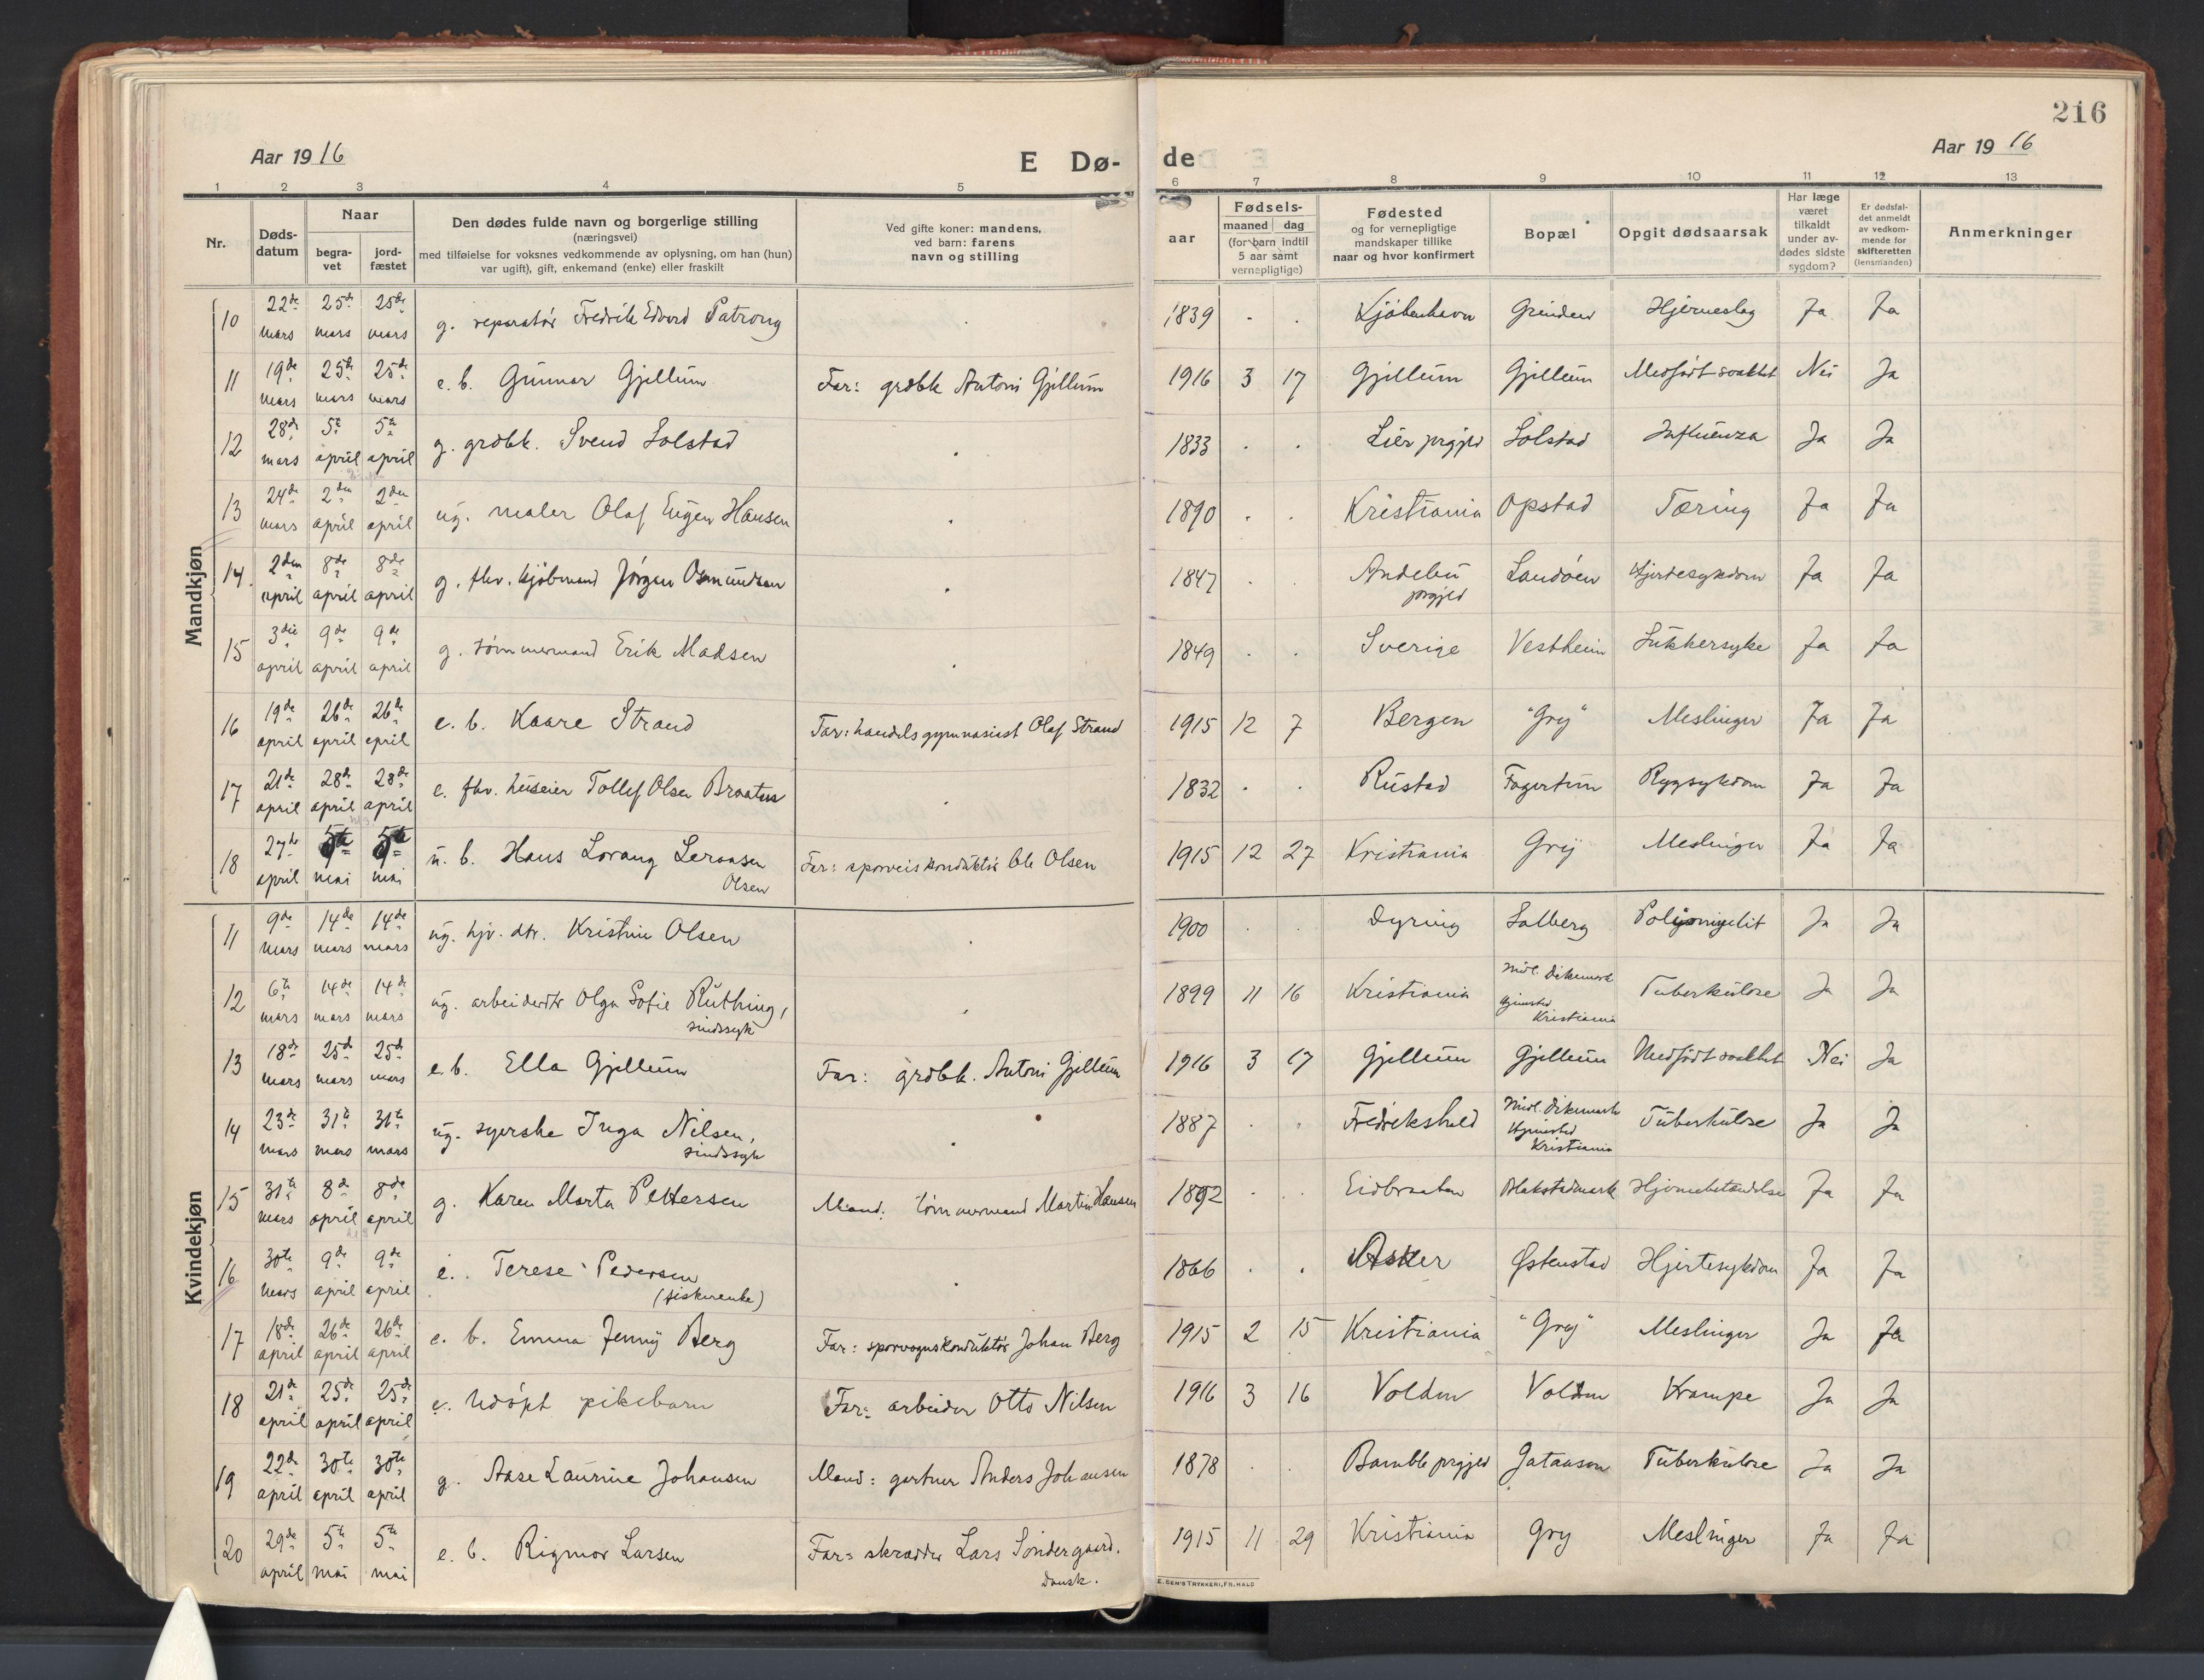 216
Aar 1916
E Dø-
de
Aar 1916
1 2 3 4 5 6 7 8 9 10 11 12 13
Nr.
Døds-
datum
Naar
begra-
vet
jord-
fæstet
Den dødes fulde navn og borgerlige stilling
(næringsvei)
med tilføielse for voksnes vedkommende av oplysning, om han (hun)
var ugift), gift, enkemand (enke) eller fraskilt
Ved gifte koner: mandens,
ved barn: farens
navn og stilling
aar
Fødsels-
maaned dag
(for barn indtil
5 aar samt
vernepligtige)
Fødested
og for vernepligtige
mandskaper tillike
naar og hvor konfirmert
Bopæl
Opgit dødsaarsak
Har læge
været
tilkaldt
under av-
dødes sidste
sygdom?
Er dødsfal-
det anmeldt
av vedkom-
mende for
skifteretten
(lensmanden)
Anmerkninger
Mandkjøn
10 22de mars 25de mars 25de mars g. reparatør Fredrik Edvard Patrong 1839 Kjøbenhavn Hjerneslag Ja Ja
11 19de mars 25de mars 25de mars e. b. Gunnar Gjellum Far: grdbk Antoni Gjellum 1916 3 17 Gjellum Gjellum Medfødt svakhet Nei Ja
12 28de mars 5te april 5te april g. grdbk. Svend Solstad 1833 Lier prgjld Solstad Influenza Ja Ja
13 24de mars 2den april 2den april ug. maler Olaf Eugen Hansen 1890 Kristiania Opstad Tæring Ja Ja
14. 2den april 8de april 8de april g. fhv. kjøbmand Jørgen Osmundsen 1847 Andebu prgjld Landøen Hjertesykdom Ja Ja
15 3die april 9de april 9de april g. tømmermand Erik Madsen 1849 Sverige Vestheim Sukkersyke Ja Ja
16 19de april 26de april 26de april e. b. Kaare Strand Far: handelsgymnasiast Olaf Strand 1915 12 7 Bergen "Gry" Meslinger Ja Ja
17 21de april 28de april 28de april e. fhv. huseier Tollef Olsen Braaten 1832 Rustad Fagertun Rygsykdom Ja Ja
18 27de april 5te mai 5te mai u. b. Hans Lorang Olsen Far: sporveiskonduktør Ole Olsen 1915 12 27 Kristiania Gry Meslinger Ja Ja
Kvindekjøn
11 9de mars 14de mars 14de mars ug. hjv. dtr. Kristine Olsen 1900 Dyring Solberg Ja Ja
12 6te mars 14de mars 14de mars ug. arbeiderdtr Olga Sofie Ruthing, sindssyk 1899 11 16 Kristiania Midl. Dikemark Hjemsted Kristiania Tuberkulose Ja Ja
13 18de mars 25de mars 25de mars e. b. Ella Gjellum Far: grdbk. Antoni Gjellum 1916 3 17 Gjellum Gjellum Medfødt svakhet Nei Ja
14 23de mars 31te mars 31te mars ug. syerske Inga Nilsen, sindssyk 1887 Fredrikshald Midl. Dikemark Hjemsted Kristiania Tuberkulose Ja Ja
15 31te mars 8de april 8de april g. Karen Marta Pettersen Mand: tømmermand Martin Hansen 1892 Eidbraaten Blakstadmark Hjernebetændelse Ja Ja
16 30te mars 9de april 9de april e. Terese Pedersen (fiskerenke) 1866 Asker Østenstad Hjertesykdom Ja Ja
17 18de april 26de april 26de april e. b. Emma Jenny Berg Far: sporvognskonduktør Johan Berg 1915 2 15 Kristiania "Gry" Meslinger Ja Ja
18 21de april 25de april 25de april e. Udøpt pikebarn Far: arbeider Otto Nilsen 1916 3 16 Volden Volden Krampe Ja Ja
19 22de april 30te april 30te april g. Aase Laurine Johansen Mand: gartner Anders Johansen 1878 Bamble prgjld Tuberkulose Ja Ja
20 29de april 5te mai 5te mai e. b. Rigmor Larsen Far: skrædder Lars Søndergaard. Dansk. 1915 11 29 Kristiania Gry Meslinger Ja Ja